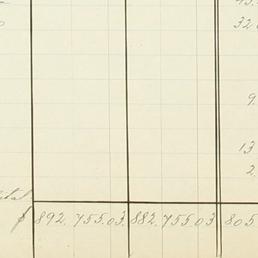 32
9
13
2
892.755.03. 882.755.03 805